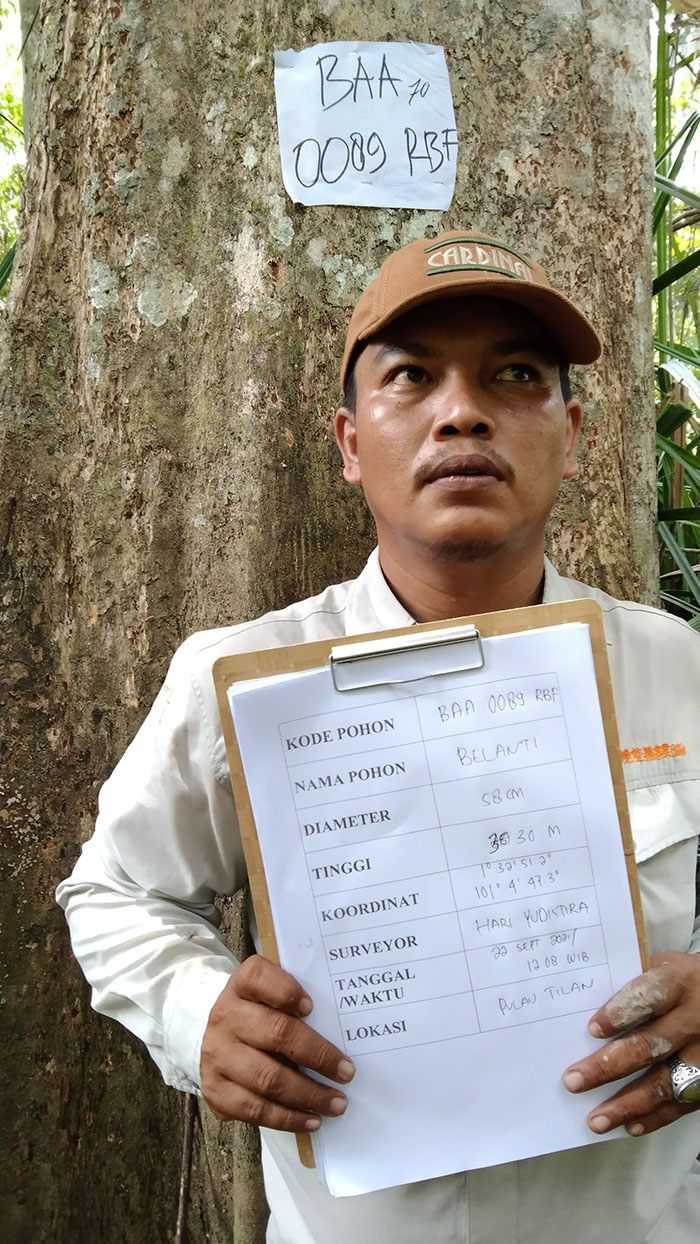 BAA 70
0089 RBF
CARDINAL
KODE POHON BAA 0089 RBF
NAMA POHON BELANTI
DIAMETER 58 CM
TINGGI 30 M
KOORDINAT 1° 32' 51.2"
101° 4' 47.3"
SURVEYOR HARI YUDISTIRA
TANGGAL /WAKTU 22 SEPT 2021/
12 08 WIB
LOKASI PULAU TILAN